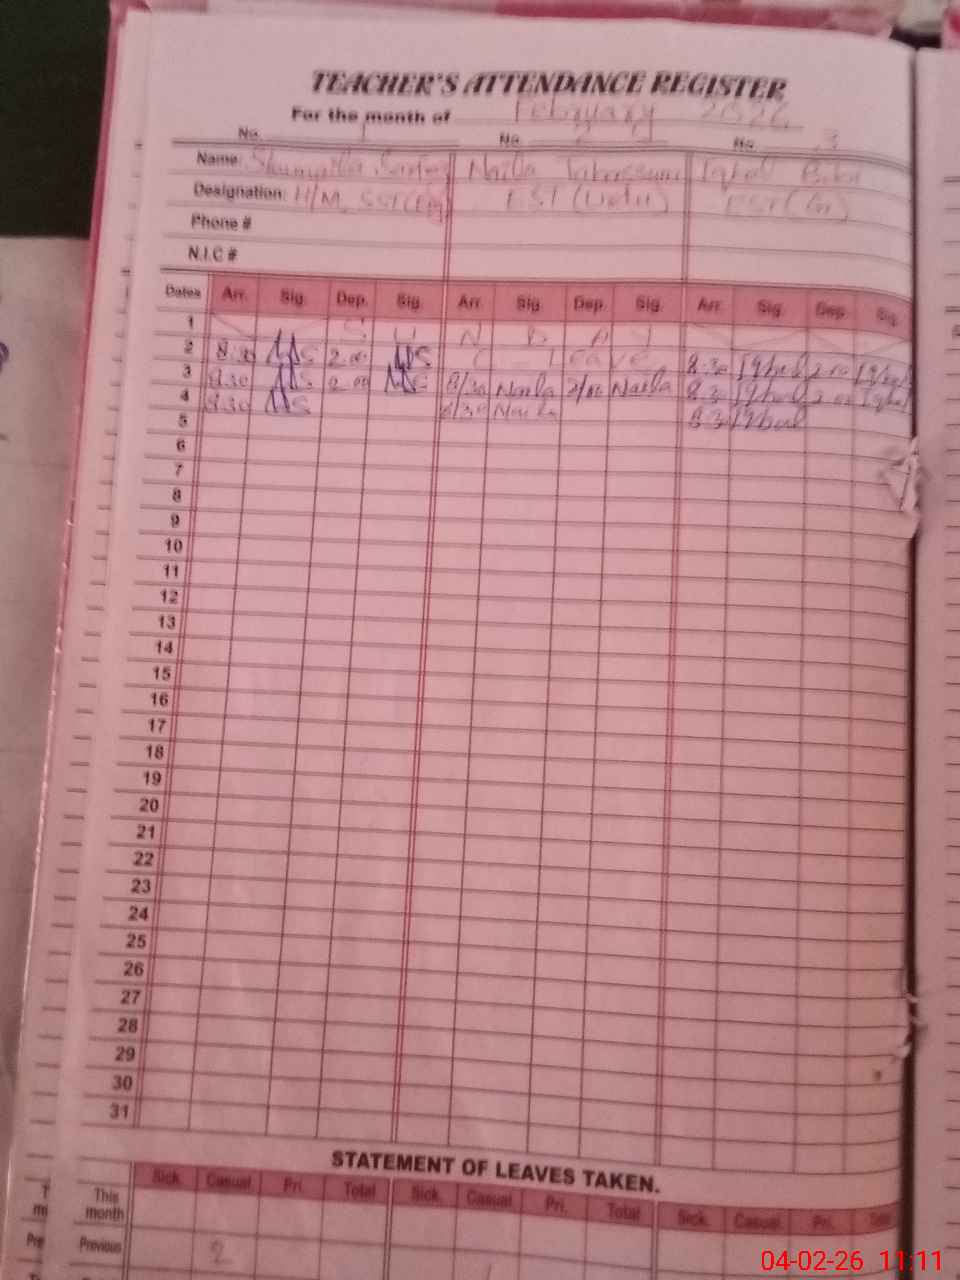 TEACHER'S ATTENDANCE REGISTER
For the month of February 2026
No. 1 No. 2 No. 3
Name: Naila Tabassum Iqbal Bibi
Designation: H/M, SST EST (Urdu) EST
Phone #
N.I.C #
Dates Arr. Sig. Dep. Sig. Arr. Sig. Dep. Sig. Arr. Sig. Dep. Sig.
1 S U N D A Y
2 8:30 MS 2:00 MS C - Leave 8:30 Iqbal 2:00 Iqbal
3 8:30 MS 2:00 MS 8/30 Naila 2/00 Naila 8:30 Iqbal 2:00 Iqbal
4 8:30 MS 8/30 Naila 8:30 Iqbal
5
6
7
8
9
10
11
12
13
14
15
16
17
18
19
20
21
22
23
24
25
26
27
28
29
30
31
STATEMENT OF LEAVES TAKEN.
Sick. Casual. Pri. Total Sick. Casual. Pri. Total Sick. Casual. Pri. Total
This month
Previous 2
04-02-26 11:11